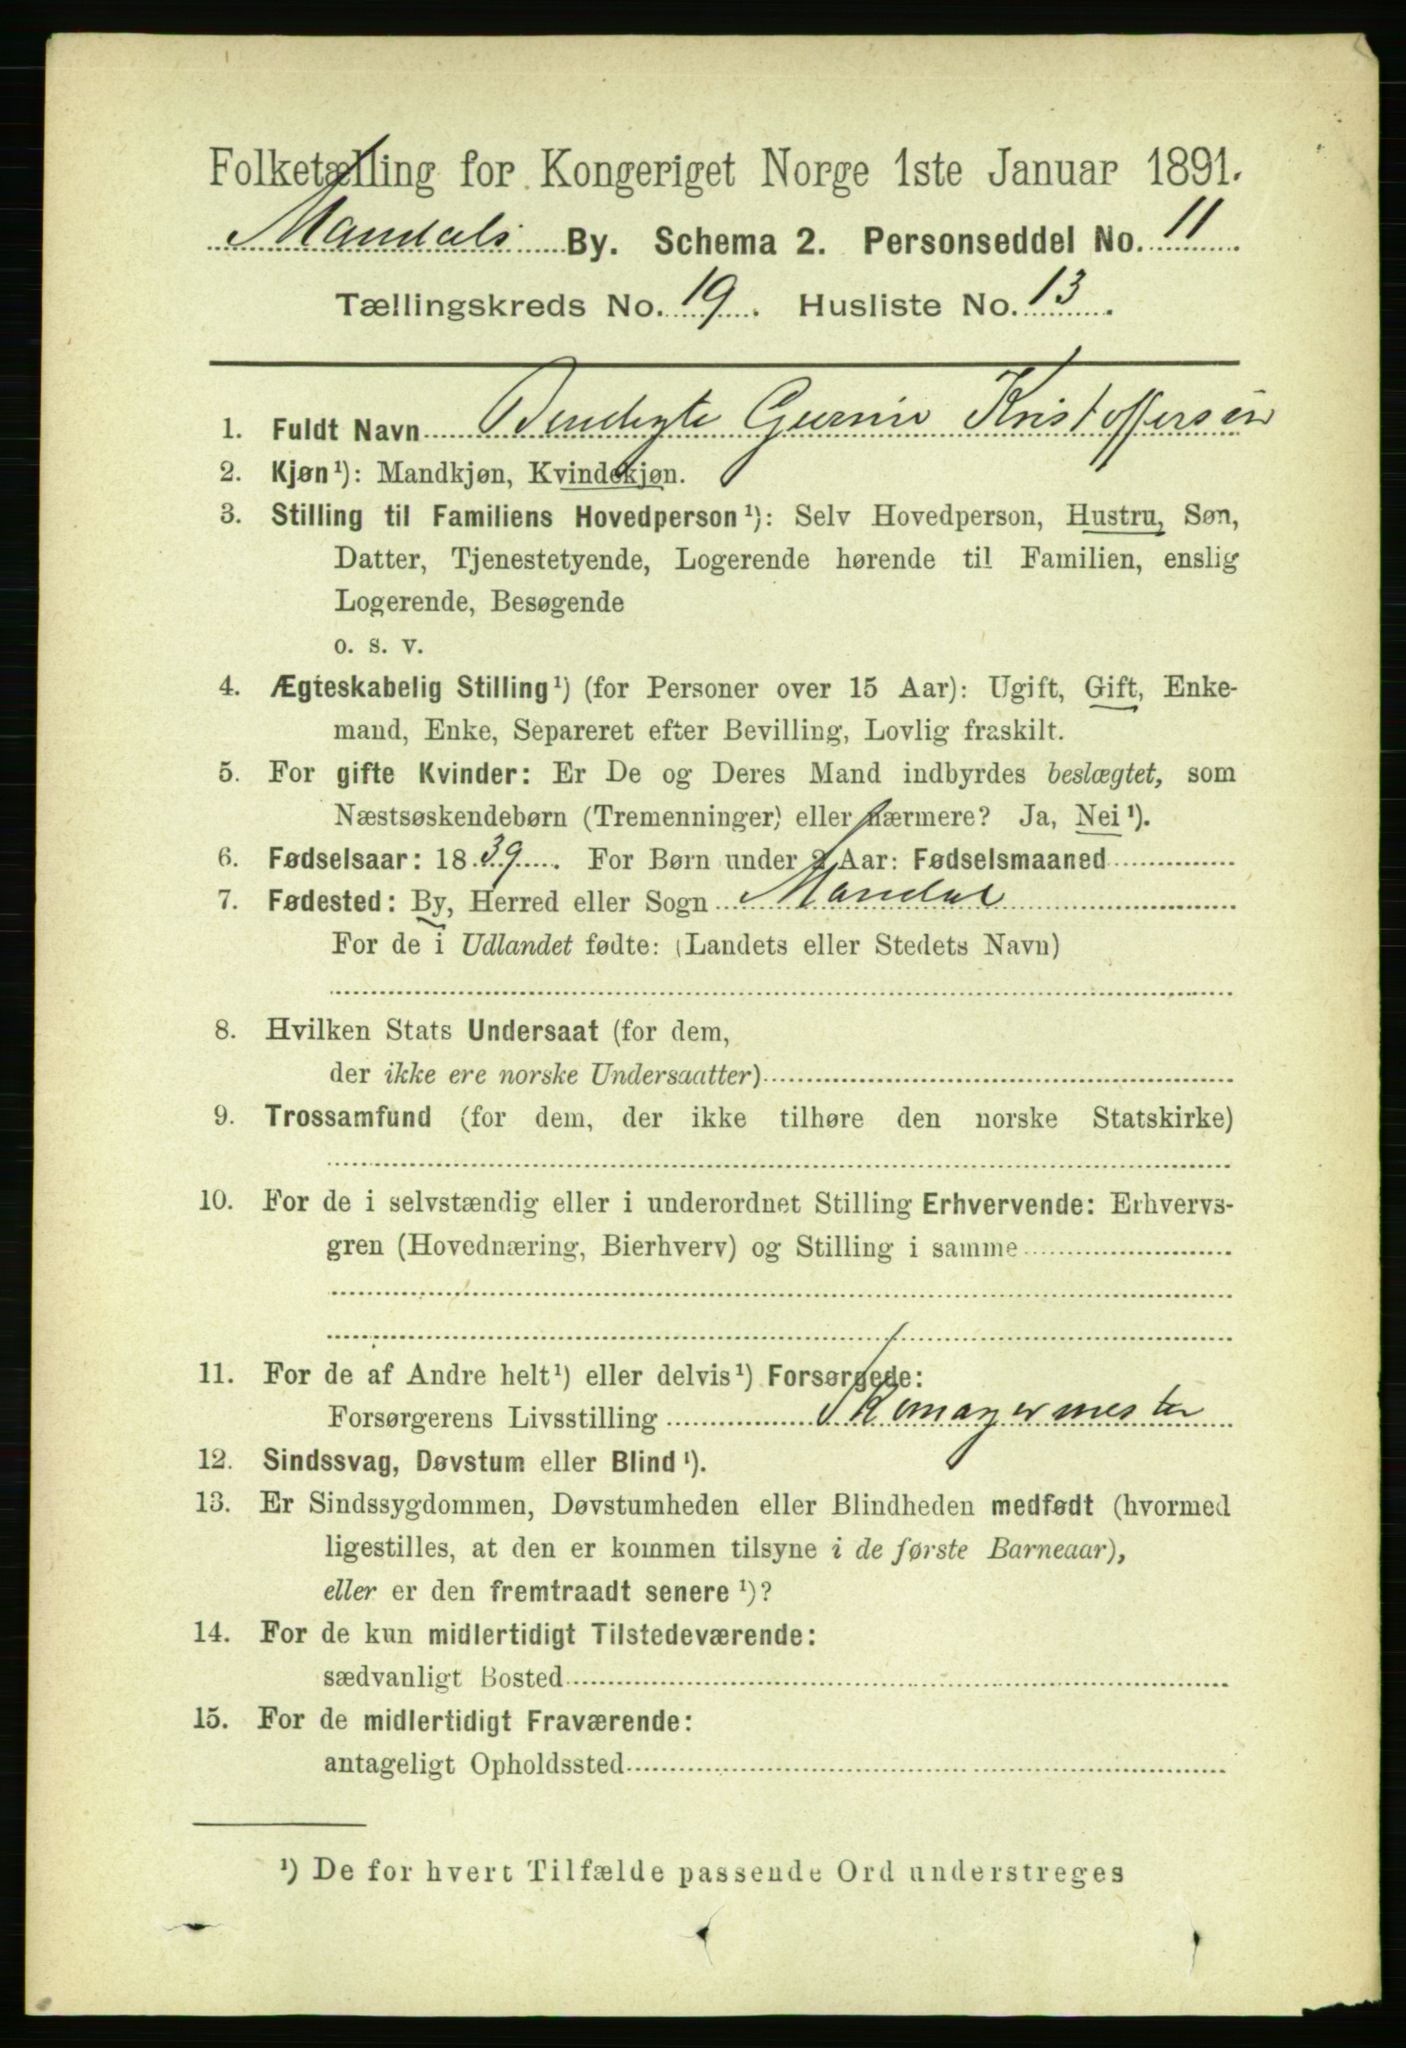 Folketælling for Kongeriget Norge 1ste Januar 1891.
Mandals By. Schema 2. Personseddel No. 11
Tællingskreds No. 19. Husliste No. 13.
1. Fuldt Navn Bendegte Gurine Kristoffersen
2. Kjøn¹): Mandkjøn, Kvindekjøn.
3. Stilling til Familiens Hovedperson¹): Selv Hovedperson, Hustru, Søn,
Datter, Tjenestetyende, Logerende hørende til Familien, enslig
Logerende, Besøgende
o. s. v.
4. Ægteskabelig Stilling¹) (for Personer over 15 Aar): Ugift, Gift, Enke-
mand, Enke, Separeret efter Bevilling, Lovlig fraskilt.
5. For gifte Kvinder: Er De og Deres Mand indbyrdes beslægtet, som
Næstsøskendebørn (Tremenninger) eller nærmere? Ja, Nei¹).
6. Fødselsaar: 1839. For Børn under 2 Aar: Fødselsmaaned
7. Fødested: By, Herred eller Sogn Mandal
For de i Udlandet fødte: (Landets eller Stedets Navn)
8. Hvilken Stats Undersaat (for dem,
der ikke ere norske Undersaatter)
9. Trossamfund (for dem, der ikke tilhøre den norske Statskirke)
10. For de i selvstændig eller i underordnet Stilling Erhvervende: Erhvervs-
gren (Hovednæring, Bierhverv) og Stilling i samme
11. For de af Andre helt¹) eller delvis¹) Forsørgede:
Forsørgerens Livsstilling Skomagermester
12. Sindssvag, Døvstum eller Blind¹).
13. Er Sindssygdommen, Døvstumheden eller Blindheden medfødt (hvormed
ligestilles, at den er kommen tilsyne i de første Barneaar),
eller er den fremtraadt senere¹)?
14. For de kun midlertidigt Tilstedeværende:
sædvanligt Bosted
15. For de midlertidigt Fraværende:
antageligt Opholdssted
¹) De for hvert Tilfælde passende Ord understreges